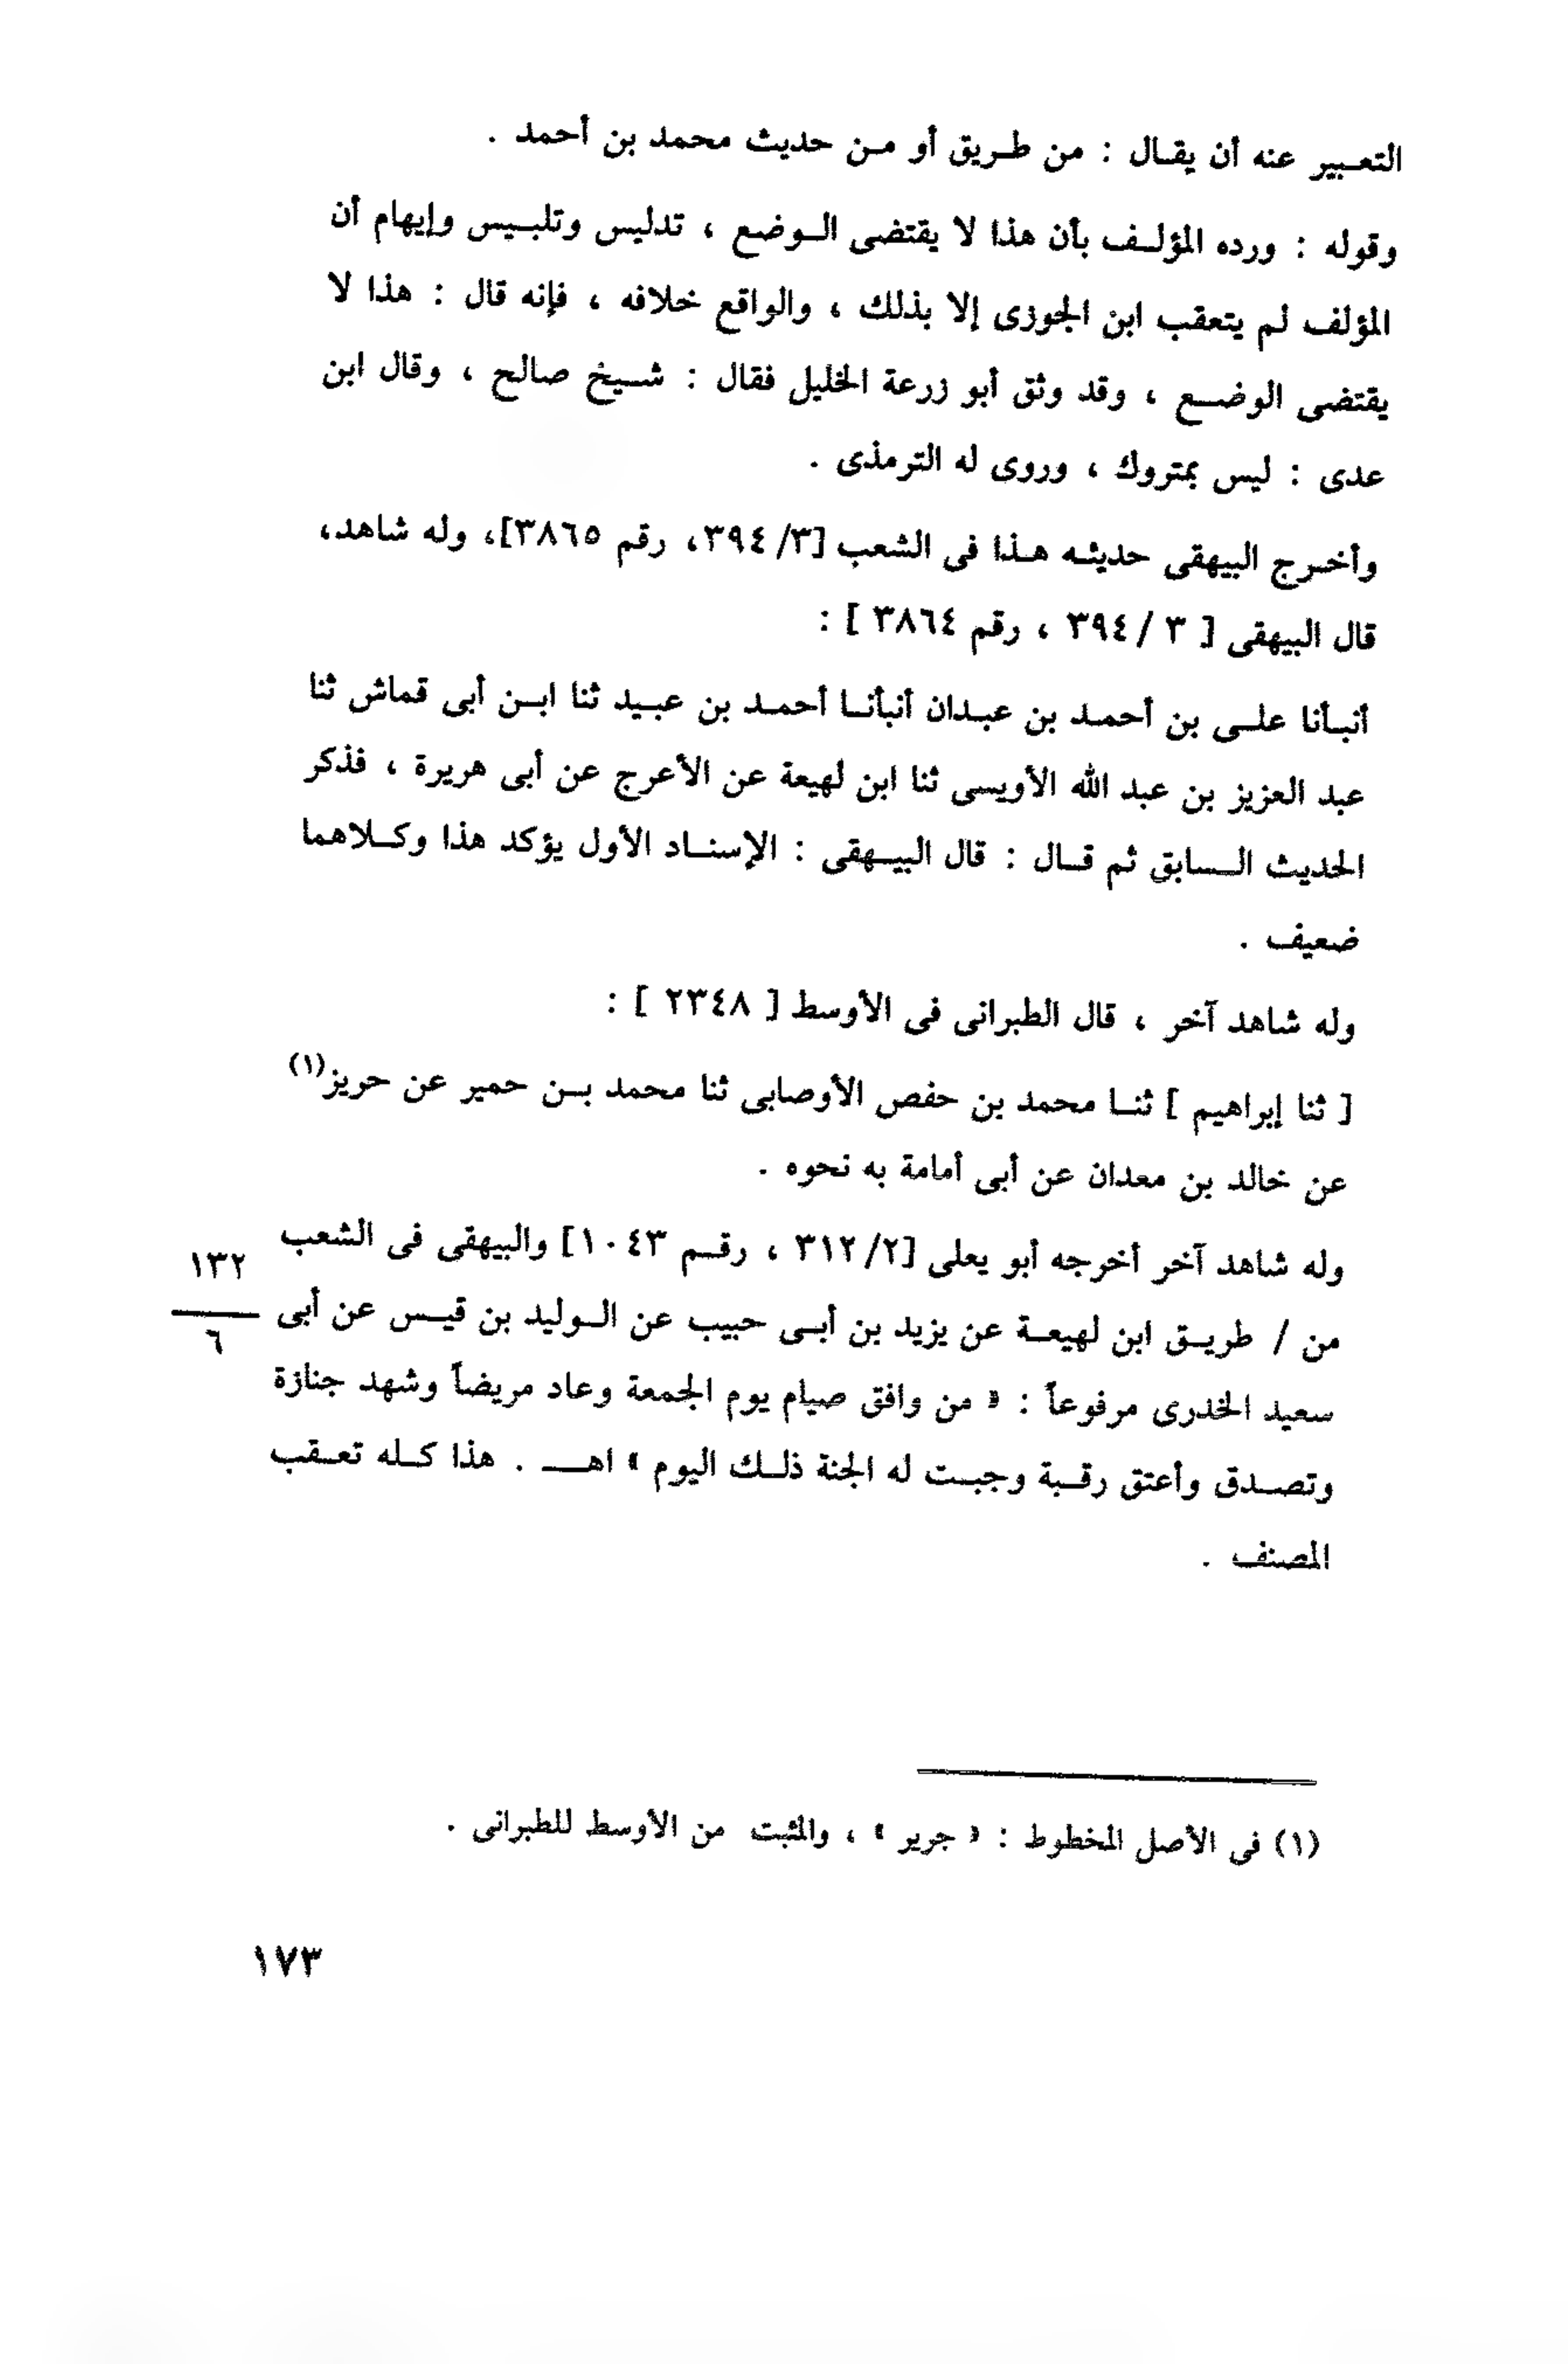 التعبير عنه أن يقال : من طريق أو من حديث محمد بن أحمد .
وقوله : ورده المؤلف بأن هذا لا يقتضى الوضع ، تدليس وتلبيس وإيهام أن
المؤلف لم يتعقب ابن الجوزى إلا بذلك ، والواقع خلافه ، فإنه قال : هذا لا
يقتضى الوضع ، وقد وثق أبو زرعة الخليل فقال : شيخ صالح ، وقال ابن
عدى : ليس بمتروك ، وروى له الترمذى .
وأخرج البيهقى حديثه هذا فى الشعب [٣/ ٣٩٤، رقم ٣٨٦٥]، وله شاهد،
قال البيهقى [ ٣ / ٣٩٤ ، رقم ٣٨٦٤ ] :
أنبأنا على بن أحمد بن عبدان أنبأنا أحمد بن عبيد ثنا ابن أبى قماش ثنا
عبد العزيز بن عبد الله الأويسى ثنا ابن لهيعة عن الأعرج عن أبى هريرة ، فذكر
الحديث السابق ثم قال : قال البيهقى : الإسناد الأول يؤكد هذا وكلاهما
ضعيف .
وله شاهد آخر ، قال الطبرانى فى الأوسط [ ٢٣٤٨ ] :
[ ثنا إبراهيم ] ثنا محمد بن حفص الأوصابى ثنا محمد بن حمير عن حريز(١)
عن خالد بن معدان عن أبى أمامة به نحوه .
وله شاهد آخر أخرجه أبو يعلى [٢/ ٣١٢ ، رقم ١٠٤٣] والبيهقى فى الشعب
١٣٢
من / طريق ابن لهيعة عن يزيد بن أبى حبيب عن الوليد بن قيس عن أبى
٦
سعيد الخدرى مرفوعاً : « من وافق صيام يوم الجمعة وعاد مريضاً وشهد جنازة
وتصدق وأعتق رقبة وجبت له الجنة ذلك اليوم » اهـ . هذا كله تعقب
المصنف .
(١) فى الأصل المخطوط : « جرير » ، والمثبت من الأوسط للطبرانى .
١٧٣